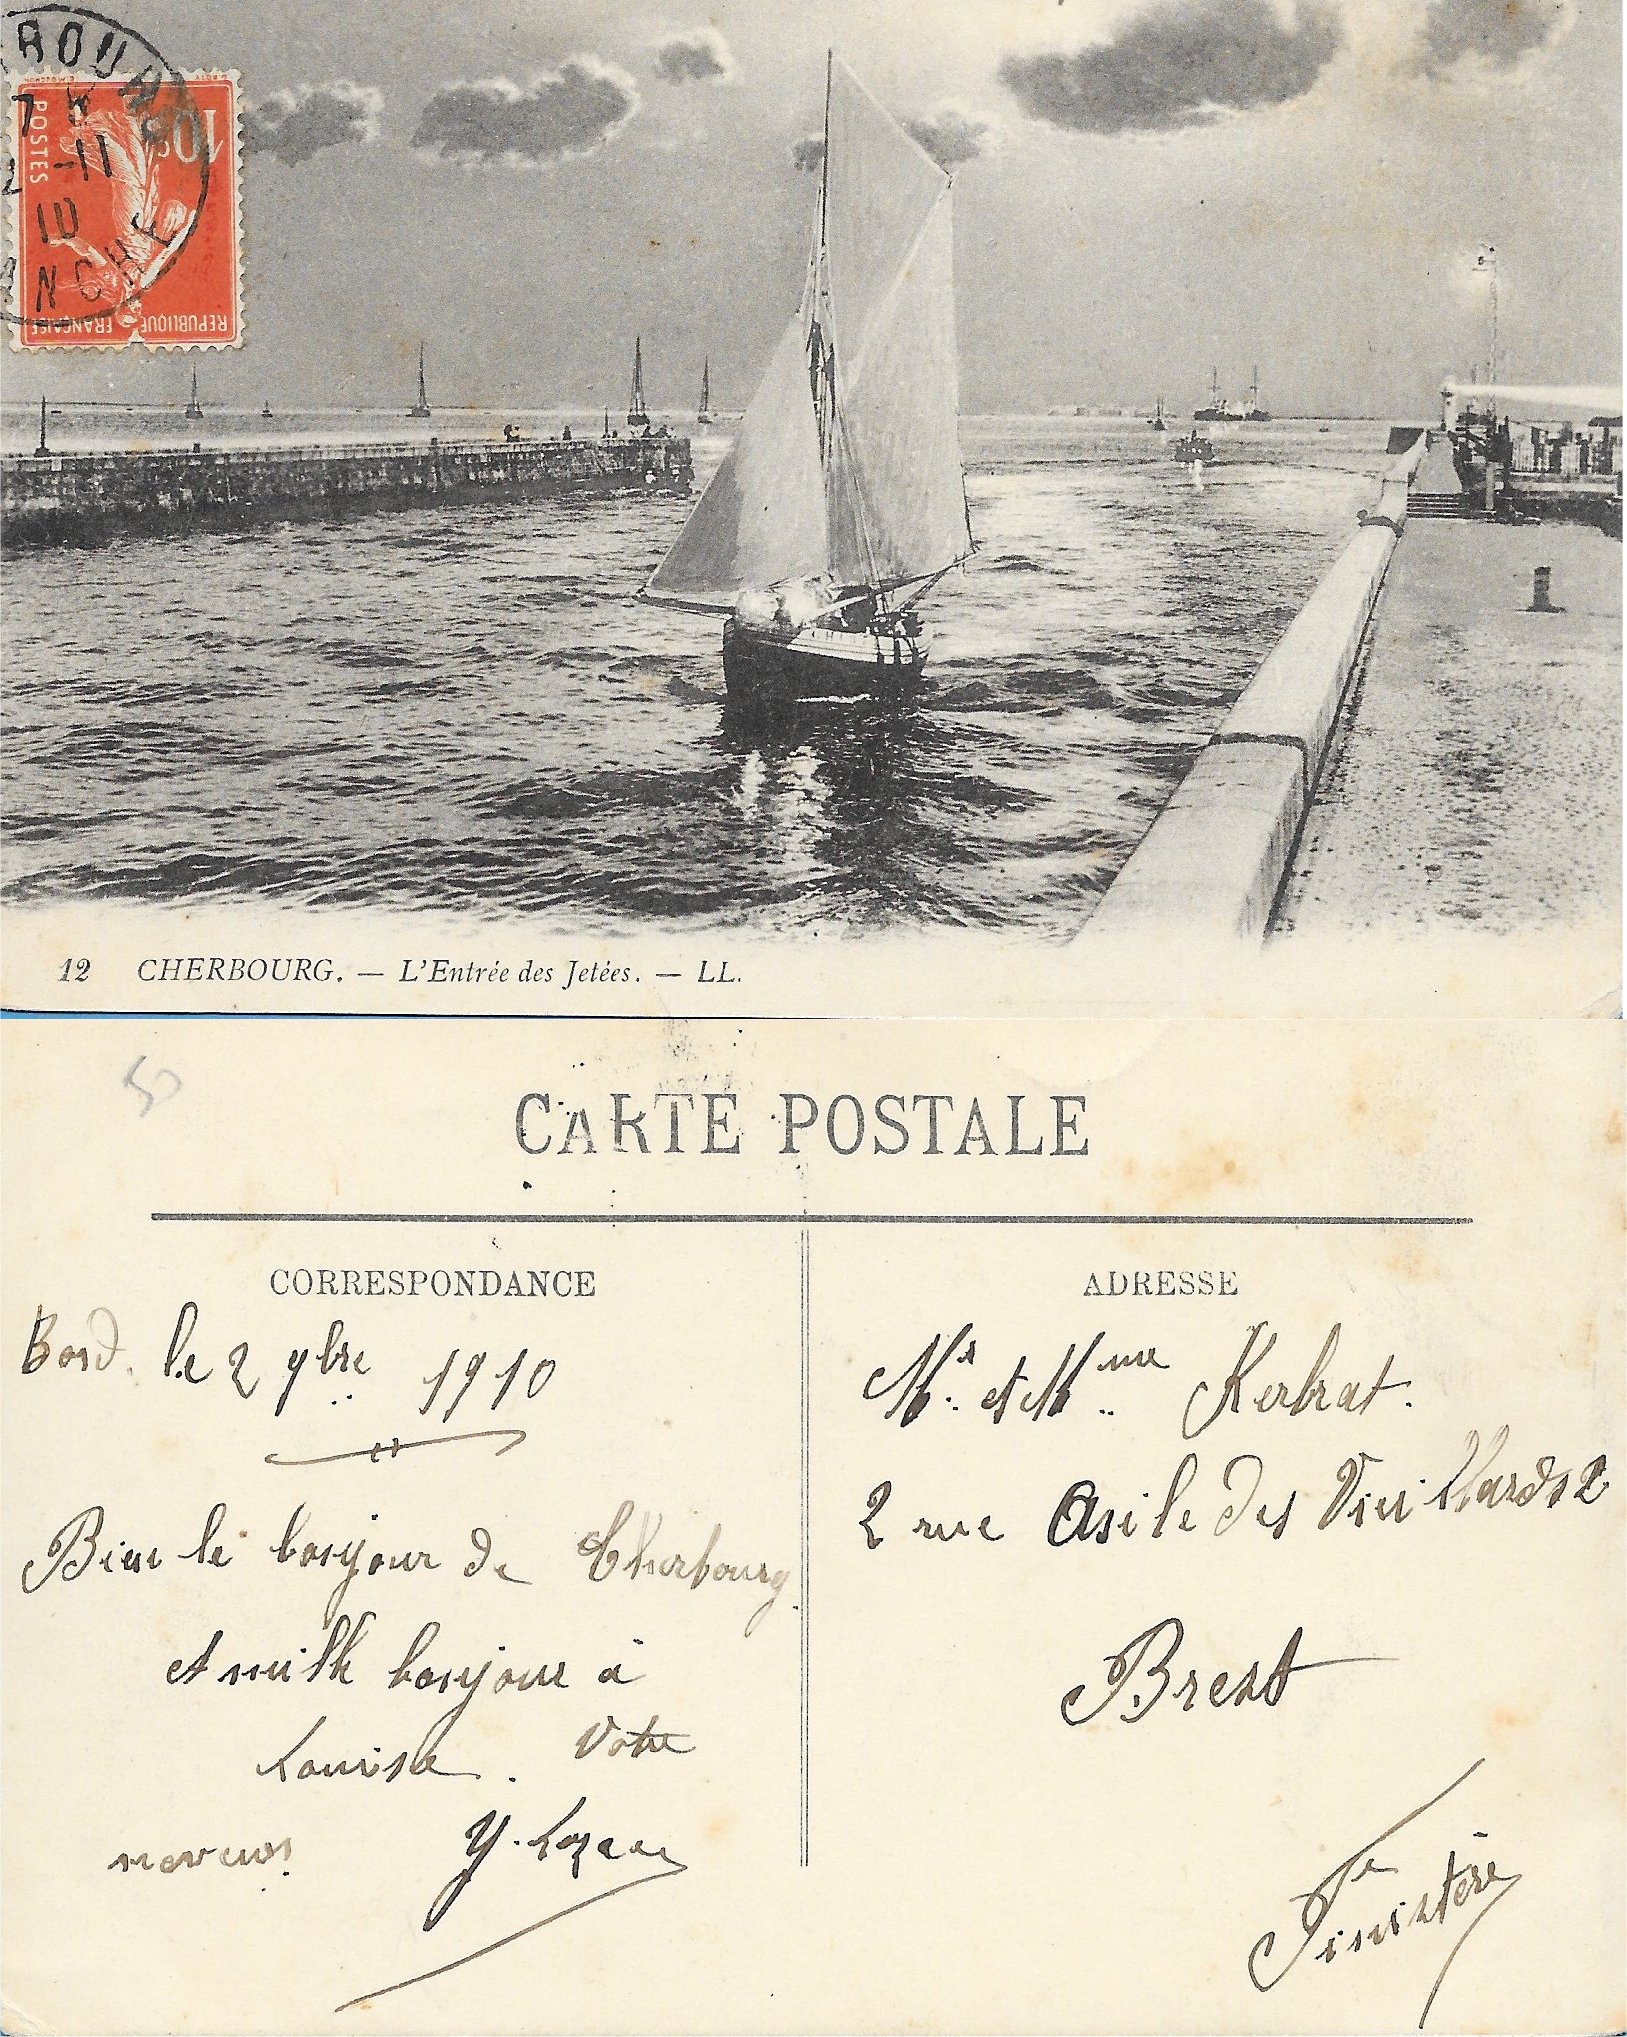 10c
POSTES
REPUBLIQUE FRANÇAISE
7
2 -11
10
12 CHERBOURG. — L'Entrée des Jetées. — LL.
50
CARTE POSTALE
CORRESPONDANCE
Bord. le 2 9bre 1910
Bien le bonjour de Cherbourg
et mille bonjour à
Louise. Votre
neveux
ADRESSE
Mr. et Mme Kerbrat.
2 rue Asile des Vieillards 2
Brest
Finistère